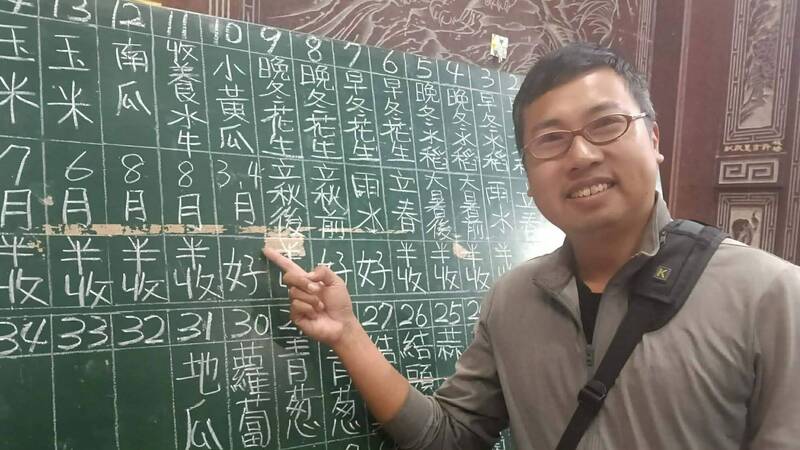 2
立春
3
早冬水稻
雨水
好
4
晚冬水稻
大暑前
半收
5
晚冬水稻
大暑後
半收
6
早冬花生
立春
半收
7
早冬花生
雨水
好
8
晚冬花生
立秋前
好
9
晚冬花生
立秋後
半收
10
小黃瓜
3 4月
好
11
收養水牛
8月
半收
12
南瓜
8月
半收
13
玉米
6月
半收
玉米
7月
半收
25
蒜
26
結頭
27
結
葱
青葱
30
蘿蔔
31
地瓜
32
33
34
K